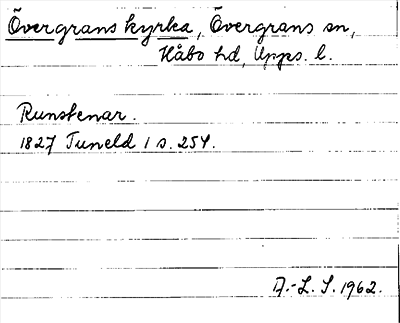 Övergrans kyrka, Övergrans sn,
Håbo hd, Upps. l.
Runstenar.
1827 Tuneld 1 s. 254.
A.-L. S. 1962.